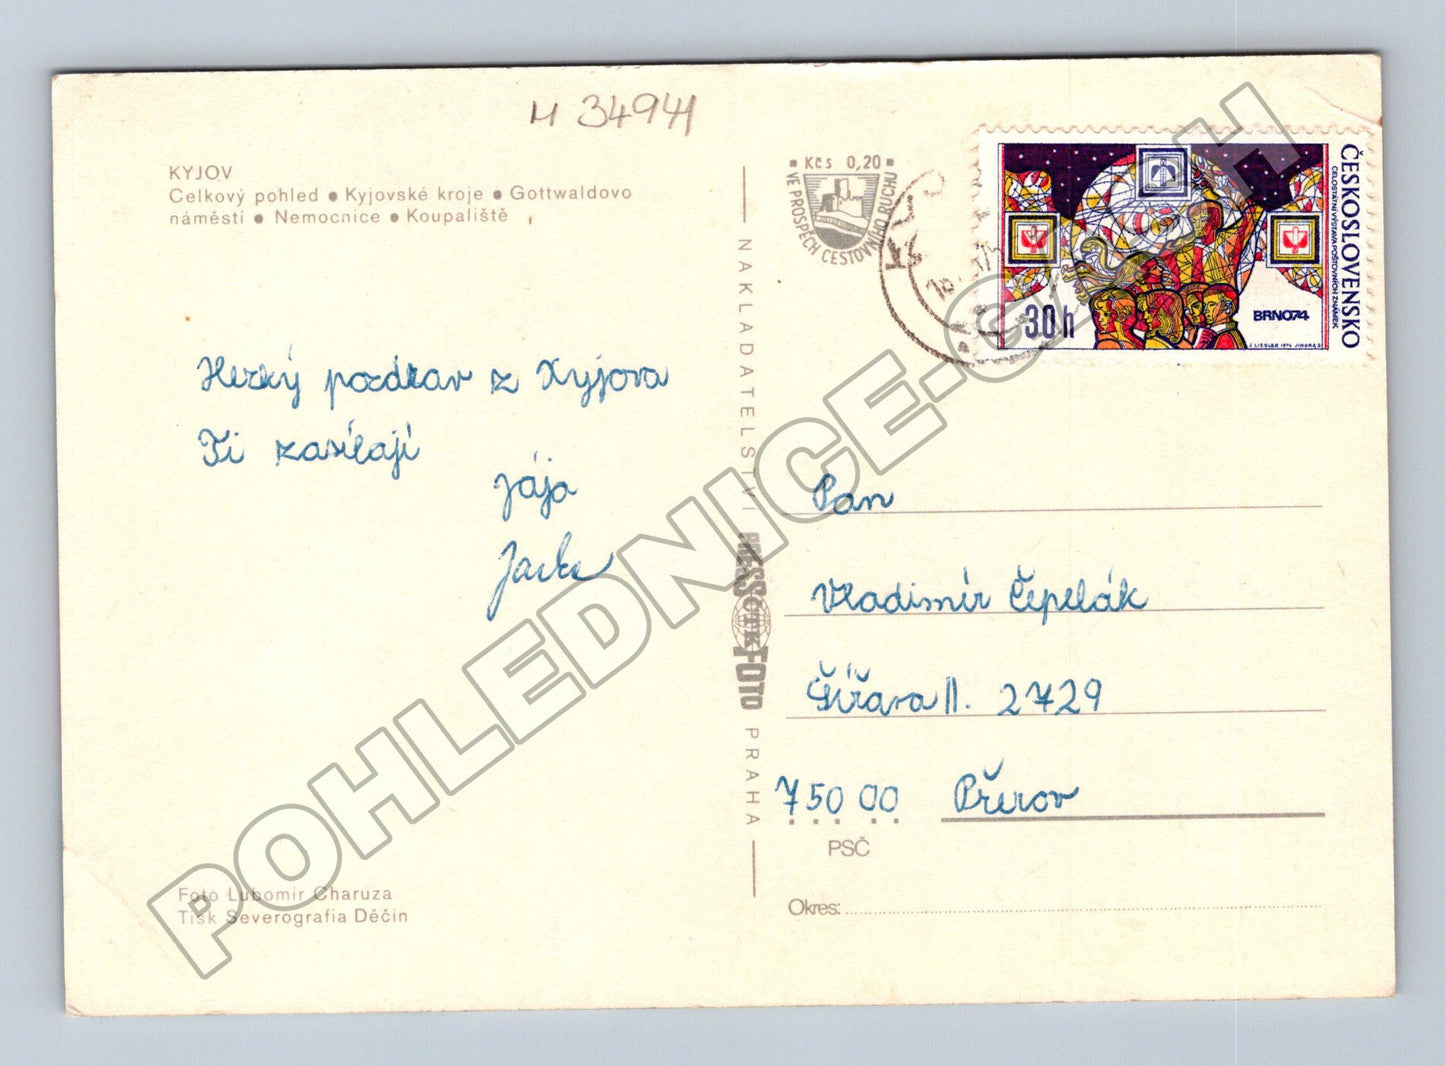 M 34941
KYJOV
Celkový pohled ● Kyjovské kroje ● Gottwaldovo
náměstí ● Nemocnice ● Koupaliště
Hezký pozdrav z Kyjova
Ti zasílají
Jája
Jarka
Foto Lubomír Charuza
Tisk Severografia Děčín
NAKLADATELSTVÍ PRESSFOTO PRAHA
ČTK
Kčs 0,20
VE PROSPĚCH CESTOVNÍHO RUCHU
ČESKOSLOVENSKO
CELOSTÁTNÍ VÝSTAVA POŠTOVNÍCH ZNÁMEK
BRNO74
30h
J. LIESLER 1974 JINDRA S.
Pan
Vladimír Čepelák
Šířava II. 2729
750 00 Přerov
PSČ
Okres:
POHLEDNICE.CZECH